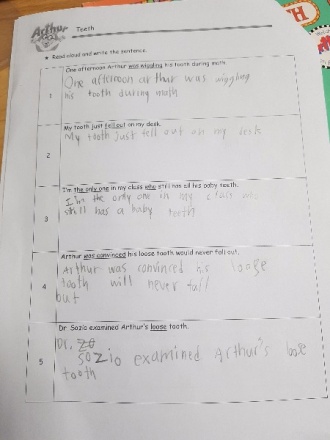 Arthur
Teeth
Read aloud and write the sentence.
One afternoon Arthur was wiggling his tooth during math.
1
One afternoon arthur was wiggling
his tooth during math
My tooth just fell out on my desk.
2
My tooth Just fell out on my desk
I'm the only one in my class who still has all his baby teeth.
3
I'm the only one in my class
still has a baby teeth
Arthur was convinced his loose tooth would never fall out.
4
Arthur was convinced his looge
tooth will never fall
but
Dr. Sozio examined Arthur's loose tooth.
5
Dr.
Sozio examined Arthur's
tooth